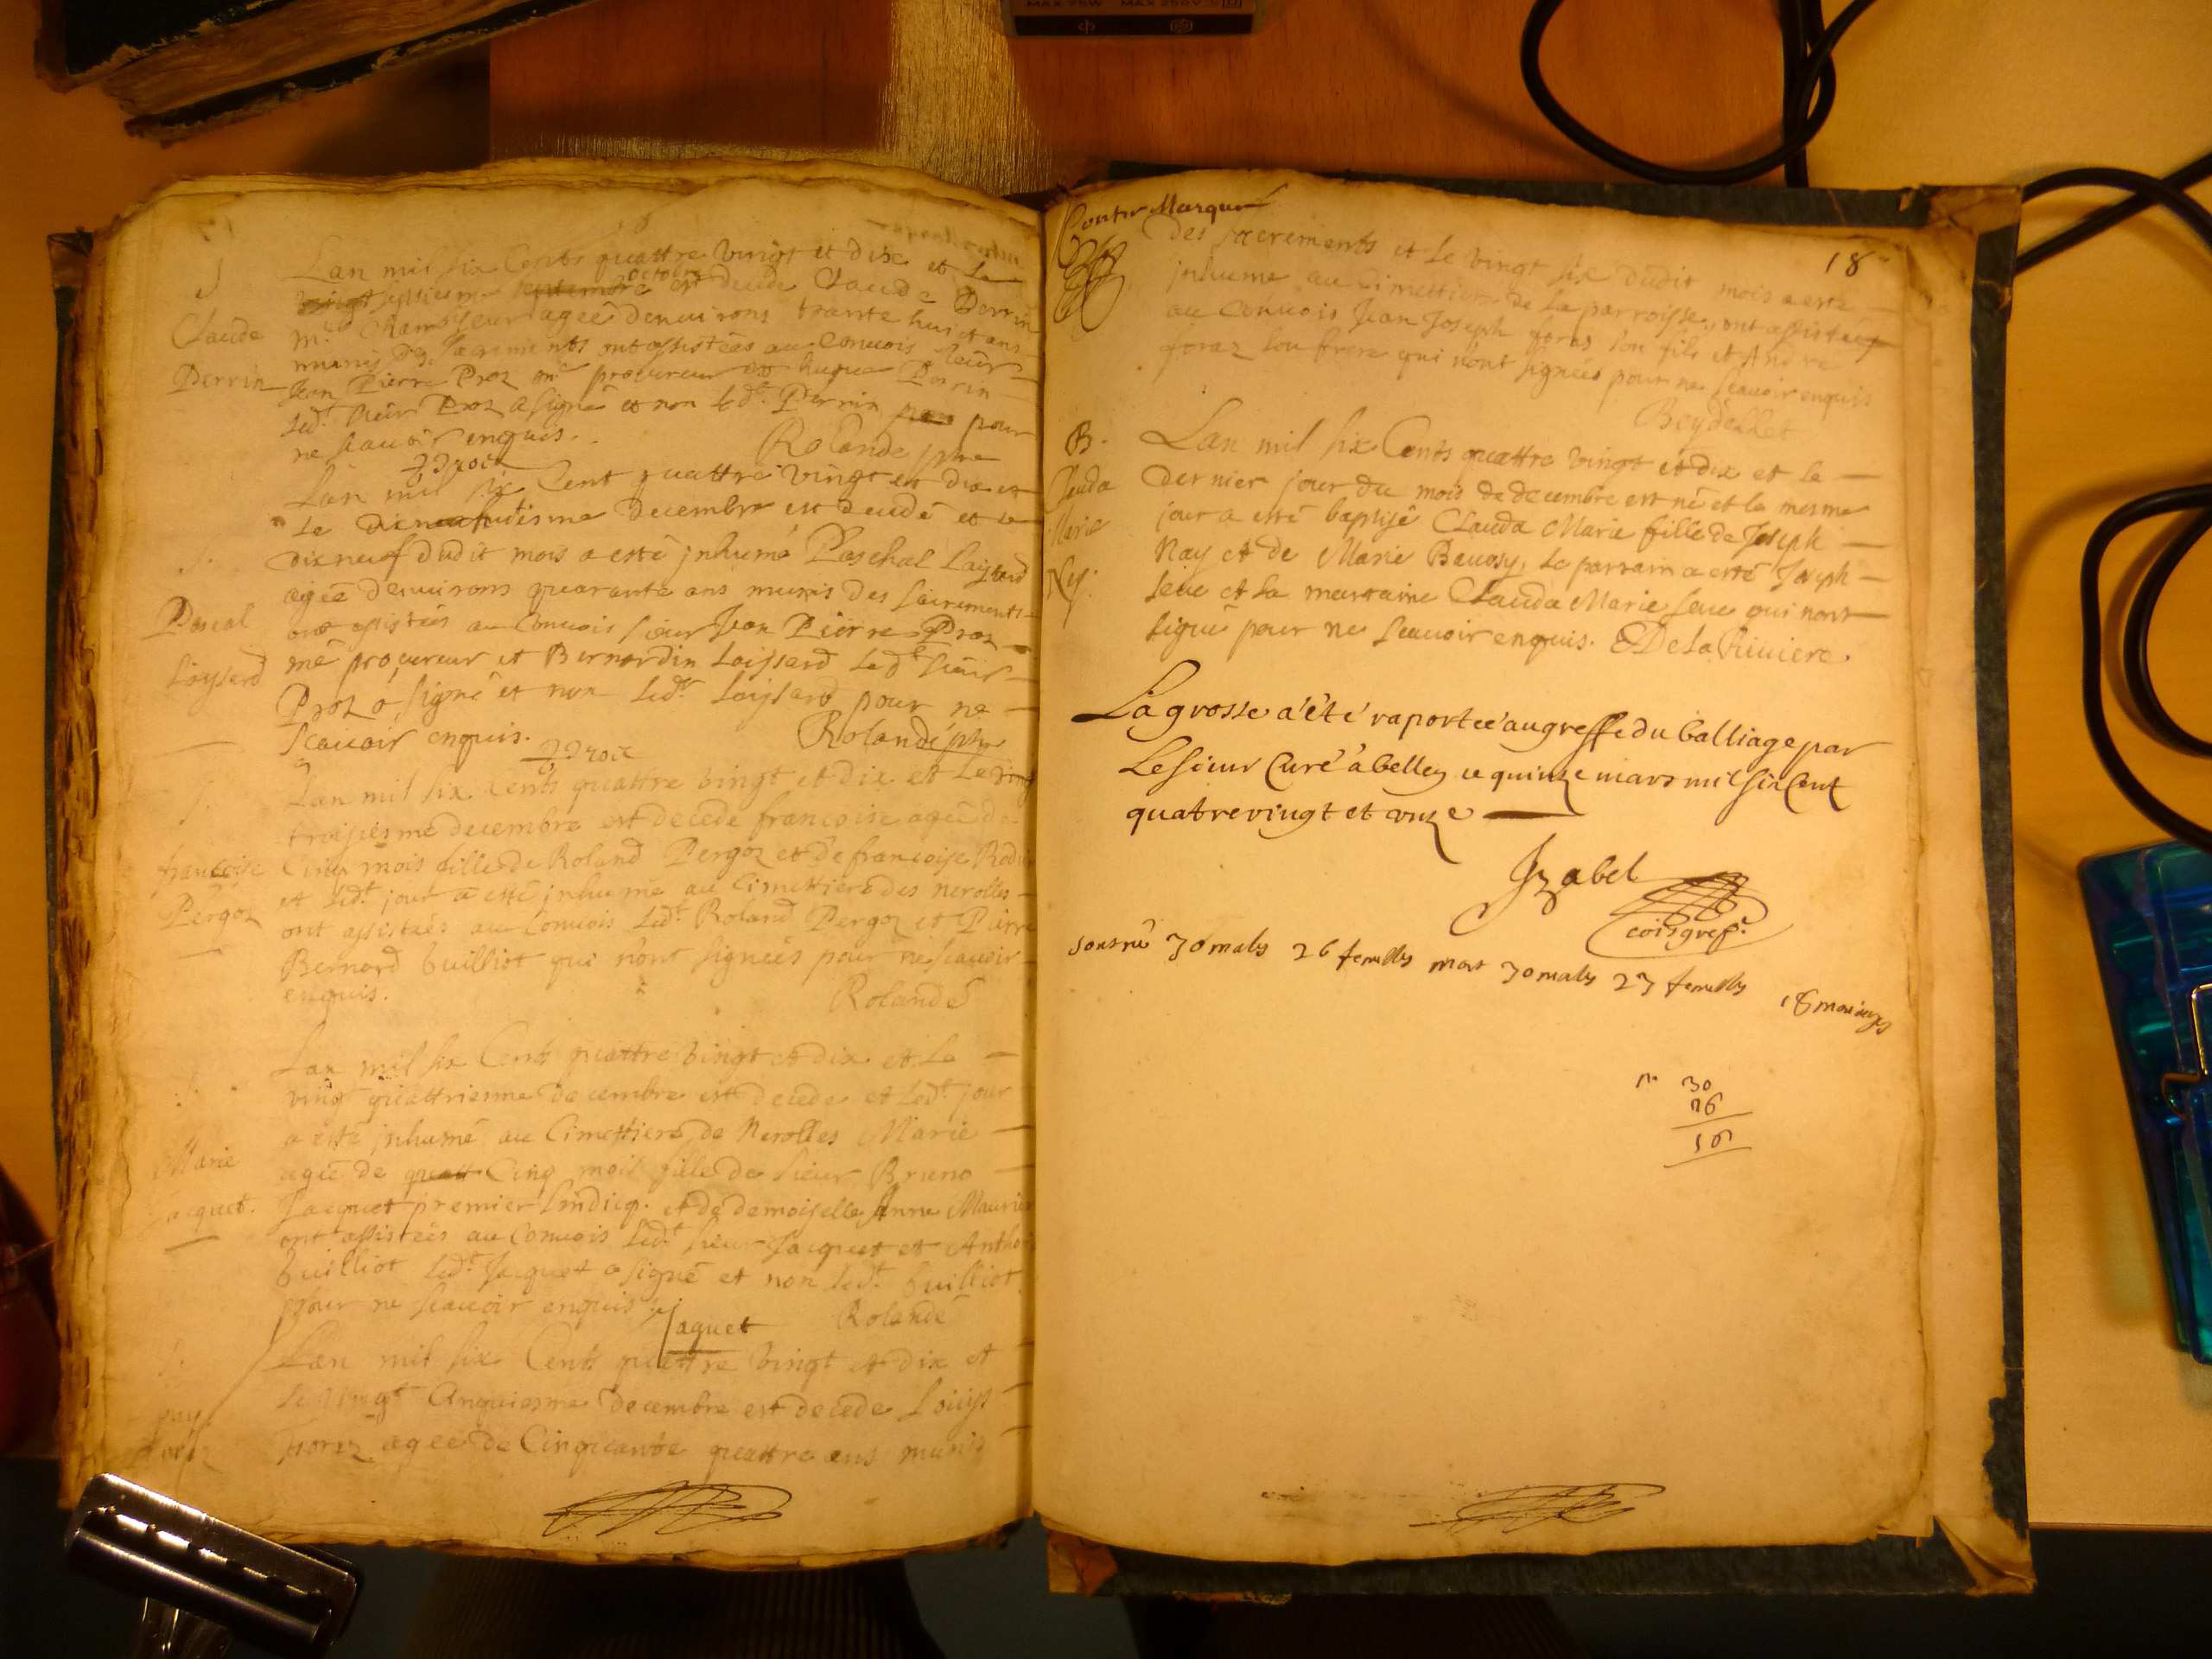 MAX 75W MAX 250V
Lan mil six Cents quattre vingt et dix et le
septiesme octobre est decede Claude Perrin
Claude
Perrin
agee denuirons trante huict ans
munis des Sacrements ont assistees au Conuois sieur
Jean Pierre Proz me procureur et hugue Perrin
led.t sieur Proz a signé et non led.t Perrin pour
ne scauoir enquis.
Rolande ptre
Lan mil six Cent quattre vingt et dix et
le decembre est decede et le
dix neuf dudit mois a esté jnhumé Paschal Loissard
agee denuirons quarante ans munis des sacrements
Pascal
Loysard
ont assistees au Conuois sieur Jean Pierre Proz
me procureur et Bernardin Loissard led.t sieur
Proz a signé et non led.t Loissard pour ne
scauoir enquis.
Rolande ptre
Lan mil six Cents quattre vingt et dix et le ving
troisiesme decembre est decede francoise agee de
francoise
Pergoz
Cinq mois fille de Roland Pergoz et de francoise
et led.t jour a esté jnhumé au Cimettiere des nerolles
ont assistees au Conuois led.t Roland Pergoz et Pierre
Bernard builliot qui nont signees pour ne scauoir
enquis.
Rolande
Lan mil six Cents quattre vingt et dix et le
vingt quattriesme decembre est decede et led.t jour
a esté jnhumé au Cimettiere de Nerolles Marie
Marie
Jacquet.
agee de quatt Cinq mois fille de sieur Bruno
Jacquet premier sindicq. et de demoiselle Anne Maurier
ont assistees au Conuois led.t sieur Jacquet et Antho
builliot led.t Jacquet a signé et non led.t builliot
pour ne scauoir enquis
Jaquet
Rolande
Lan mil six Cents quattre vingt et dix et
le vingt Cinquiesme decembre est decede Louys
agee de Cinquante quattre ans munis
Contre Marqué
18
des sacrements et le vingt six dudit mois a esté
jnhume au Cimettiere de la parroisse, ont assistees
au Conuois Jean Joseph son fils et André
son frere qui nont signees pour ne scauoir enquis
Beydellet
B.
Clauda
Marie
Ney.
Lan mil six Cents quattre vingt et dix et le
dernier jour du mois de decembre est né et le mesme
jour a esté baptisé Clauda Marie fille de Joseph
Nay et de Marie Beuosy, le parrain a esté Joseph
seue et la marraine Clauda Marie seue qui nont
signé pour ne scauoir enquis. De la Riuiere.
La grosse a été raportée au greffe du balliage par
Le sieur Curé a belley ce quinze mars mil six Cent
quatre vingt et onze
Izabel
cois gref.r
sont né 30 males 26 femelles mort 30 males 23 femelles 18 mariages
30
26
56